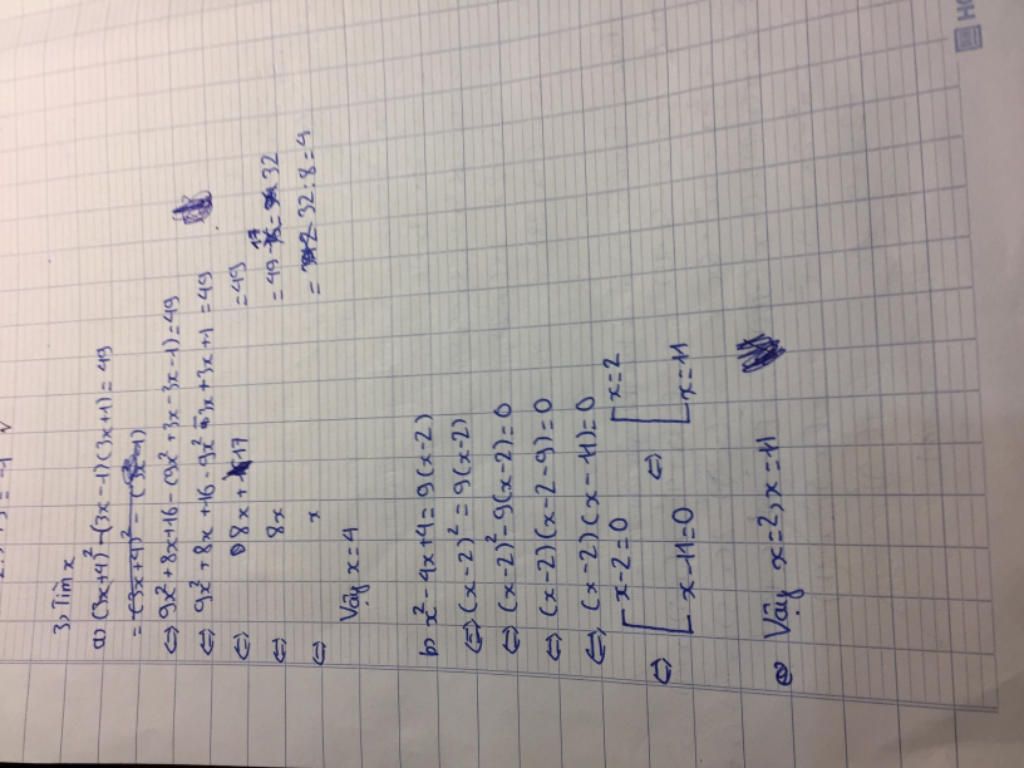 3, Tìm x
a) (3x+4)² - (3x-1)(3x+1) = 49
= (3x+4)² -
⇔ 9x² + 8x + 16 - (9x² + 3x - 3x - 1) = 49
⇔ 9x² + 8x + 16 - 9x² - 3x + 3x + 1 = 49
⇔ 8x + 17 = 49
⇔ 8x = 49 17 = 32
⇔ x = 32 : 8 = 4
Vậy x = 4
b) x² - 4x + 4 = 9(x-2)
⇔ (x-2)² = 9(x-2)
⇔ (x-2)² - 9(x-2) = 0
⇔ (x-2)(x-2-9) = 0
⇔ (x-2)(x-11) = 0
⇔ [ x-2 = 0 ⇔ [ x = 2
x-11 = 0 x = 11
Vậy x = 2, x = 11